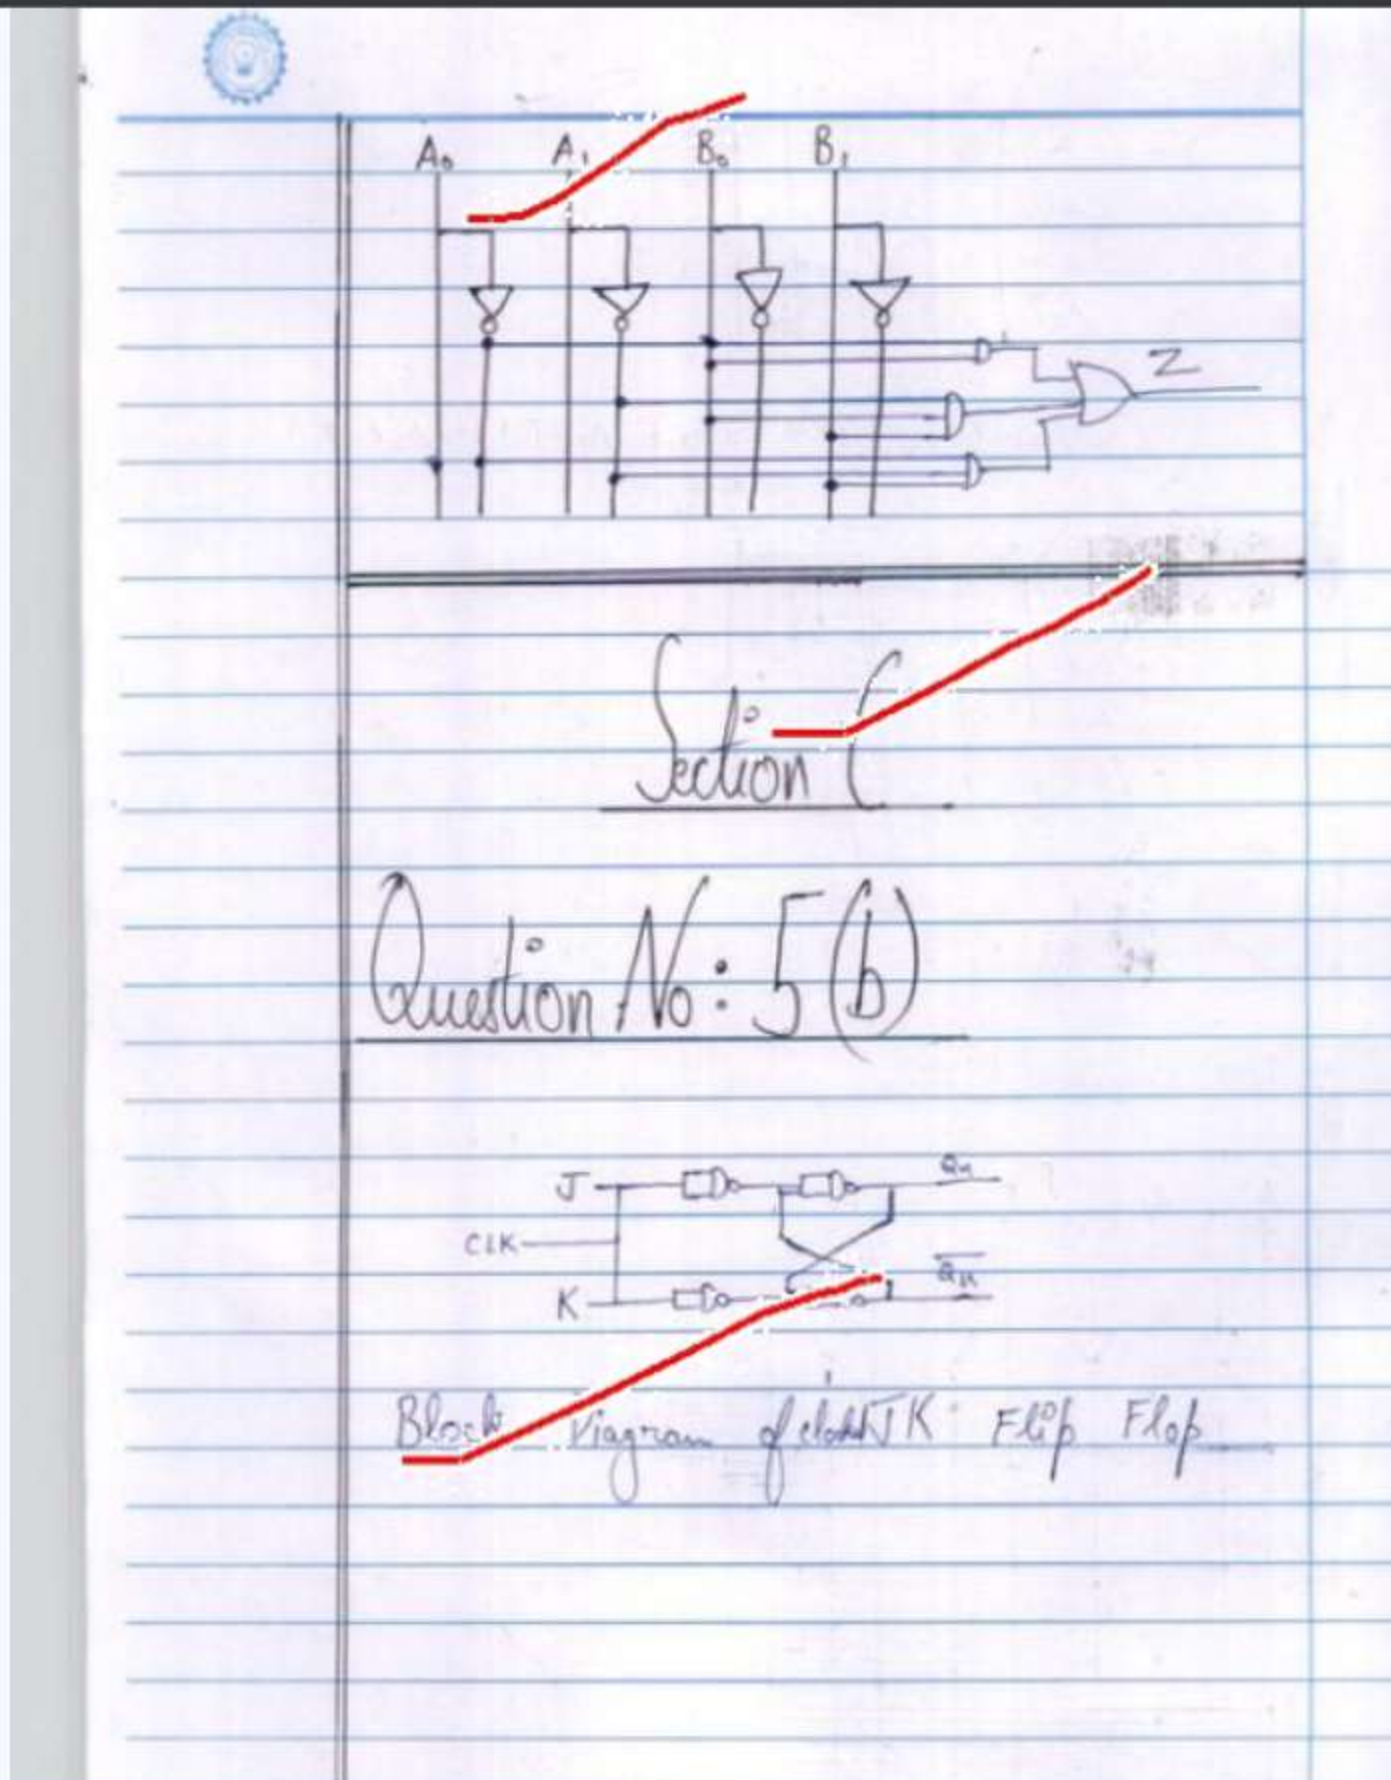 A₀ A₁ B₀ B₁
Z
Section C
Question No: 5 (b)
J Qn
CLK
K Q̅n̅
Block Diagram of JK Flip Flop